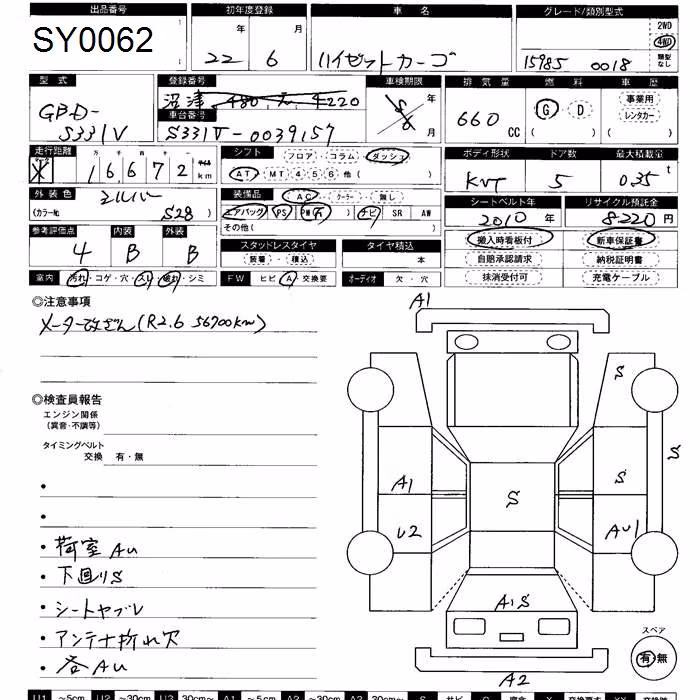 出品番号 初年度登録 車名 グレード/類別型式
SY0062 22年 6月 ハイゼットカーゴ 15985 0018 2WD 4WD 類型なし
型式 登録番号 車検期限 排気量 燃料 車歴
GBD-S331V 沼津 480 え 4220 年 月 660 CC G・D ( ) 事業用 レンタカー ( )
車台番号
S331V-0039157
走行距離 十万千百十一 マイル シフト フロア・コラム・ダッシュ ボディ形状 ドア数 最大積載量
16672 km AT・MT 4・5・6 他( ) KVT 5 0.35 t
外装色 シルバー 装備品 AC・クーラー・無し シートベルト年 リサイクル預託金
(カラー№ S28 ) エアバッグ PS PW ナビ SR AW 2010年 8220円
その他( )
参考評価点 内装 外装 スタッドレスタイヤ タイヤ積込 搬入時看板付 新車保証書
4 B B 装着・積込 本 自賠承認請求 納税証明書
室内 汚れ・コゲ・穴・スリ・破れ・シミ FW ヒビ・A・交換要 オーディオ 欠・穴 抹消受付可 充電ケーブル
◎注意事項
メーター改ざん(R2.6 56700km)
◎検査員報告
エンジン関係
(異音・不調等)
タイミングベルト
交換 有・無
・荷室 AU
・下回りS
・シートヤブレ
・アンテナ折れ欠
・各AU
A1
S
S
A1
S
S
U2
AU1
A1S
A2
スペア
有・無
U1 ~5cm U2 ~30cm U3 30cm~ A1 ~5cm A2 ~30cm A3 30cm~ S サビ C 腐食 X 交換要 XX 交換済